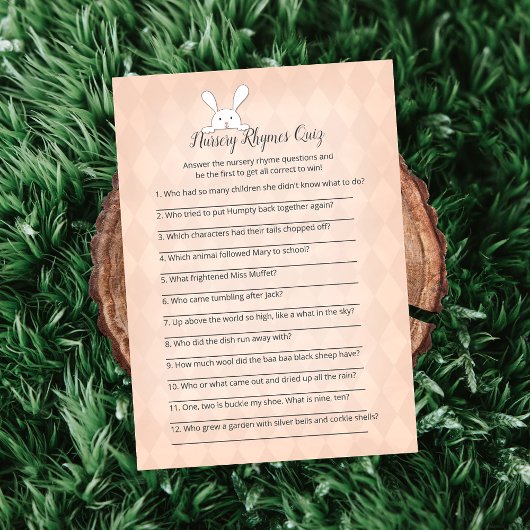 Nursery Rhymes Quiz
Answer the nursery rhyme questions and
be the first to get all correct to win!
1. Who had so many children she didn't know what to do?
2. Who tried to put Humpty back together again?
3. Which characters had their tails chopped off?
4. Which animal followed Mary to school?
5. What frightened Miss Muffet?
6. Who came tumbling after Jack?
7. Up above the world so high, like a what in the sky?
8. Who did the dish run away with?
9. How much wool did the baa baa black sheep have?
10. Who or what came out and dried up all the rain?
11. One, two is buckle my shoe. What is nine, ten?
12. Who grew a garden with silver bells and corkle shells?